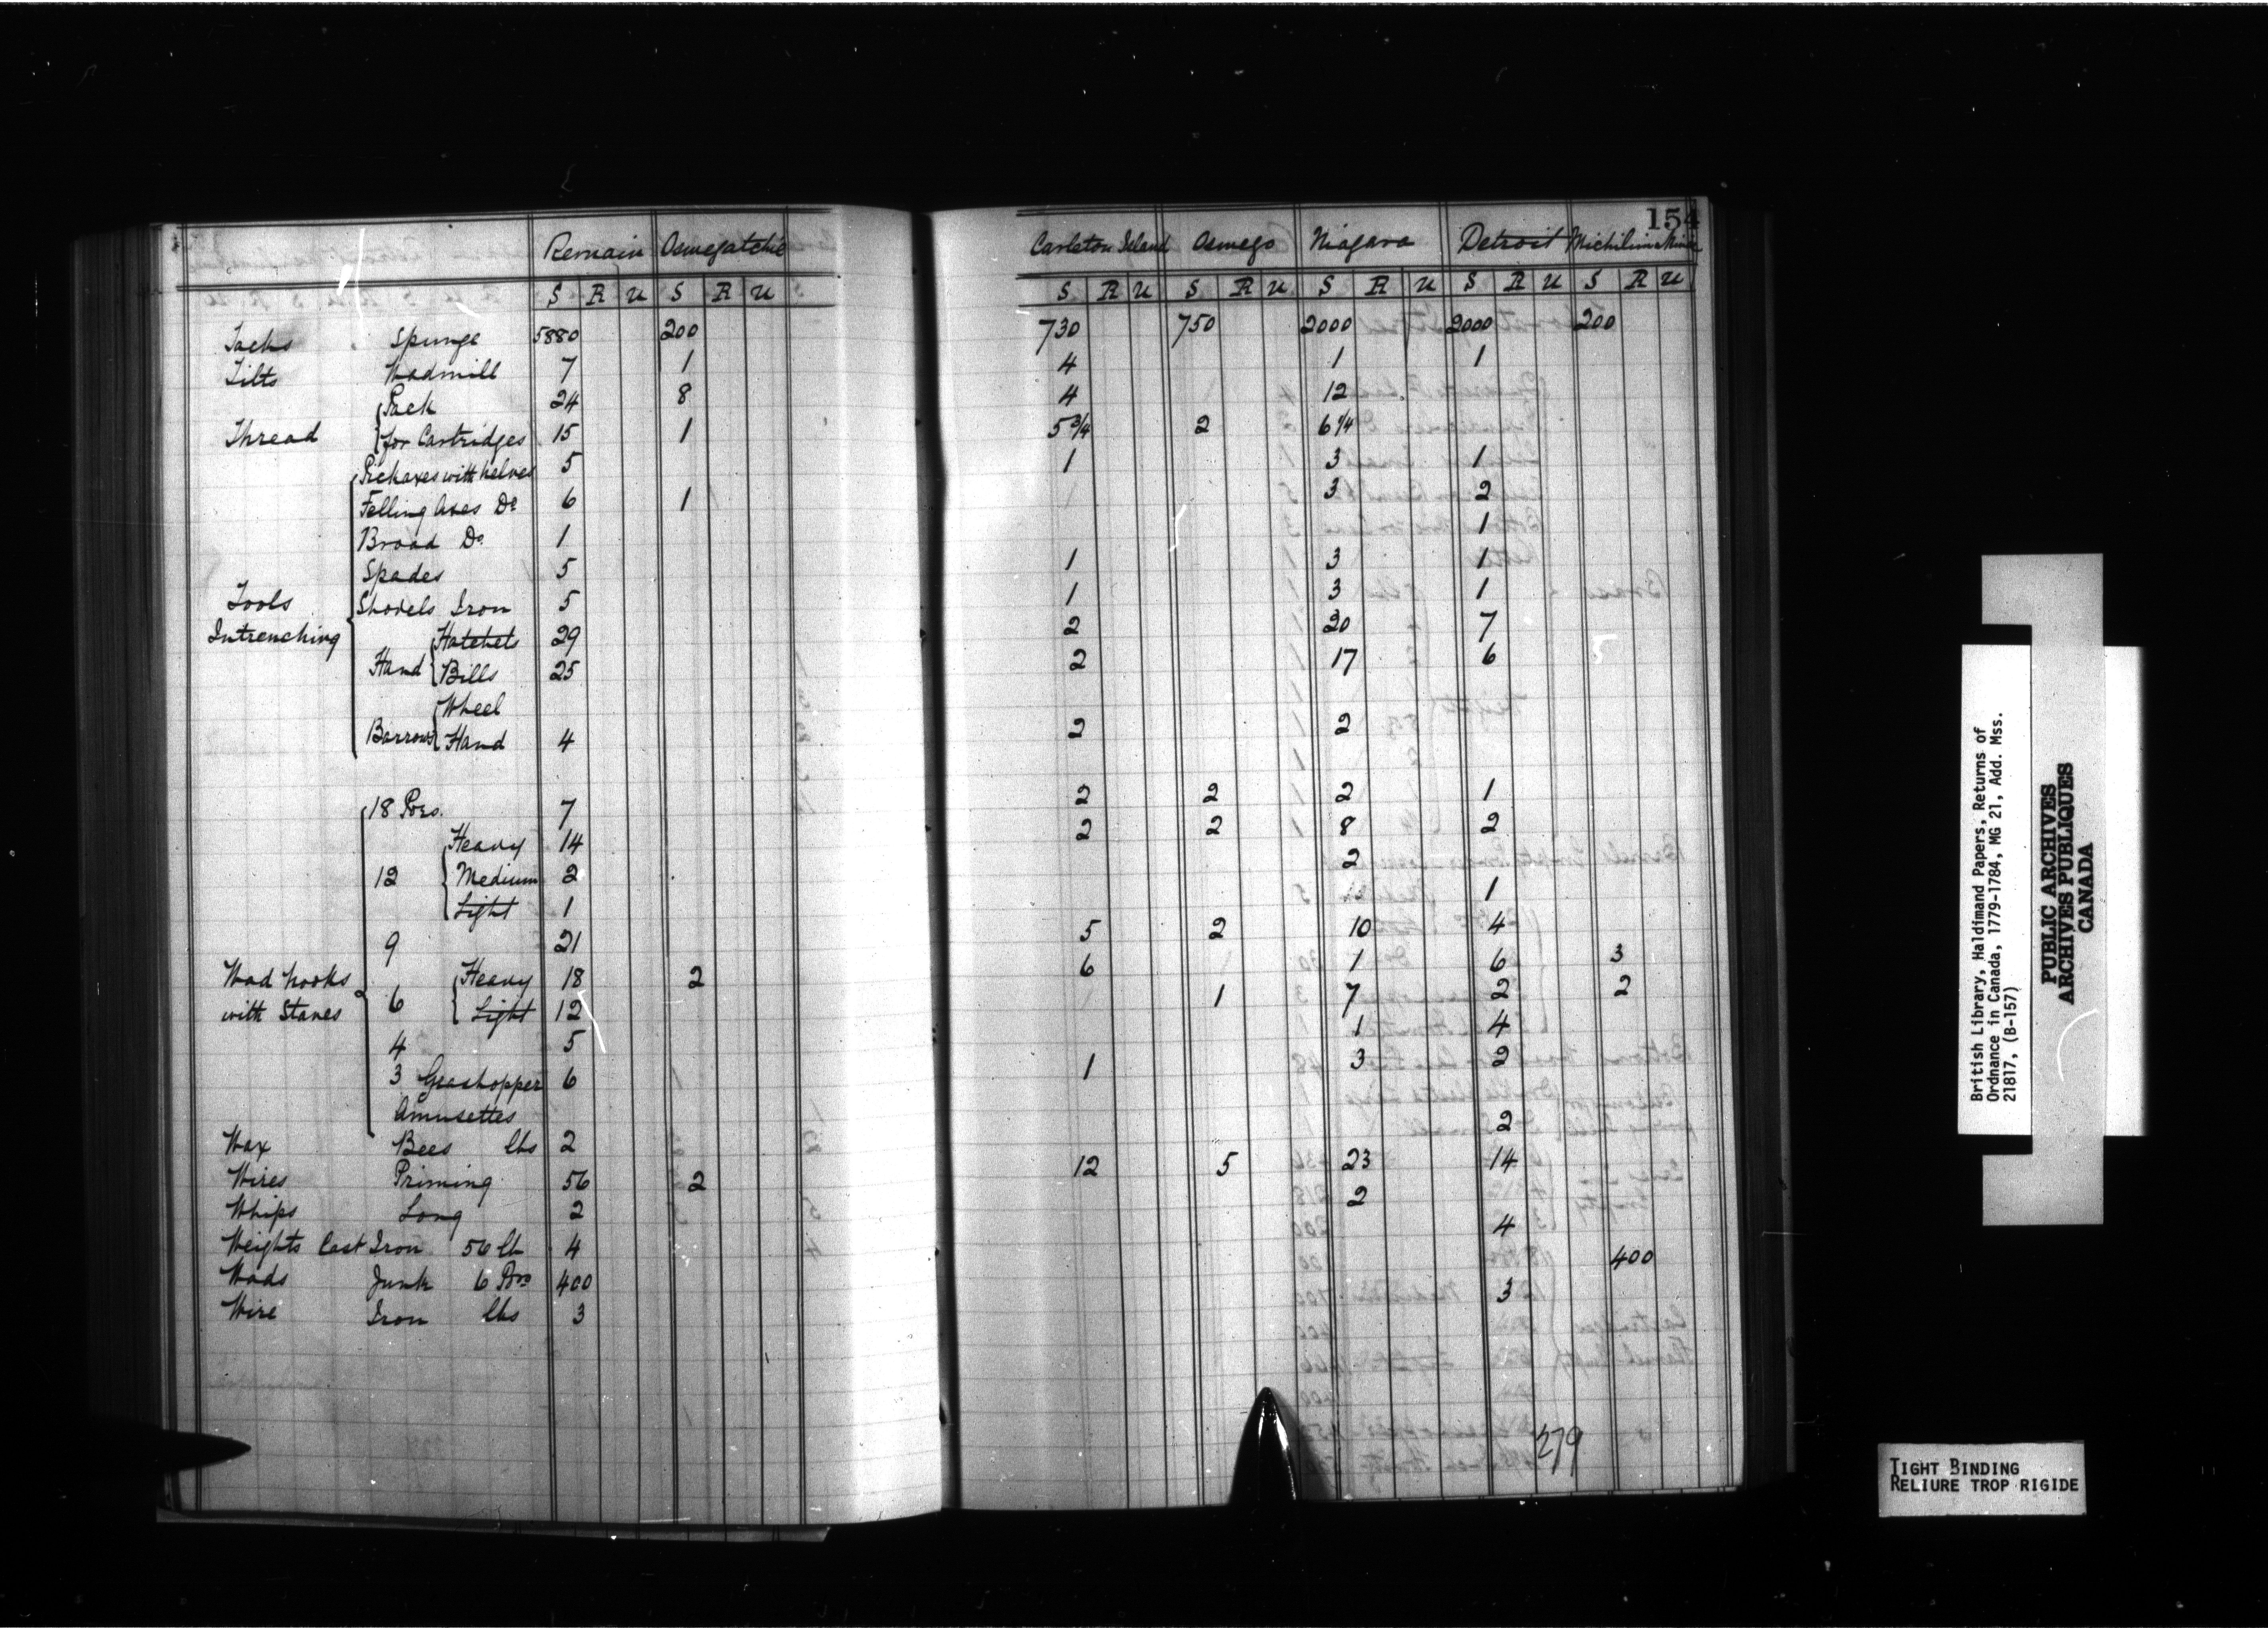 154
Remain Oswegatchie Carleton Island Oswego Niagara Detroit Michilimakinac
S R U S R U S R U S R U S R U S R U S R U
Tacks Spunge 5880 200 730 750 2000 2000 200
Tilts Wadmill 7 1 4 1 1
Thread { Pack 24 8 4 12
for Cartridges 15 1 5 3/4 2 6 1/4
Tools Intrenching { Pickaxes with helves 5 1 3 1
Felling Axes Do 6 1 3 2
Broad Do 1 1
Spades 5 1 3 1
Shovels Iron 5 1 3 1
Hand { Hatchets 29 2 20 7
Bills 25 2 17 6
Barrows { Wheel
Hand 4 2 2
Wad hooks with Staves { 18 Prs. 7 2 2 2 1
12 { Heavy 14 2 2 8 2
Medium 2 2
Light 1 1
9 21 5 2 10 4
6 { Heavy 18 2 6 1 6 3
Light 12 1 7 2 2
4 5 1 4
3 Grashopper 6 1 3 2
Amusettes
Wax Bees lbs 2 2
Wires Priming 56 2 12 5 23 14
Whips Long 2 2
Weights Cast Iron 56 lb 4 4
Wads Junk 6 Prs 400 400
Wire Iron lbs 3 3
279
British Library, Haldimand Papers, Returns of
Ordnance in Canada, 1779-1784, MG 21, Add. Mss.
21817, (B-157)
PUBLIC ARCHIVES
ARCHIVES PUBLIQUES
CANADA
TIGHT BINDING
RELIURE TROP RIGIDE